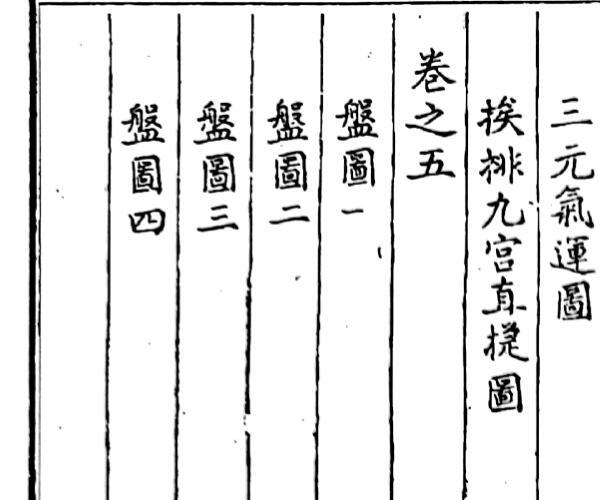 三元氣運圖
挨排九宮直提圖
卷之五
盤圖一
盤圖二
盤圖三
盤圖四